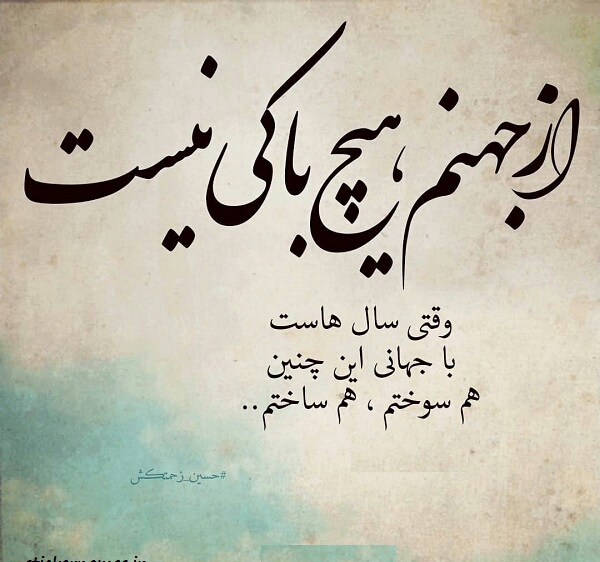 از جهنم هیچ باکی نیست
وقتی سال هاست
با جهانی این چنین
هم سوختم ، هم ساختم..
#حسین_زحمتکش